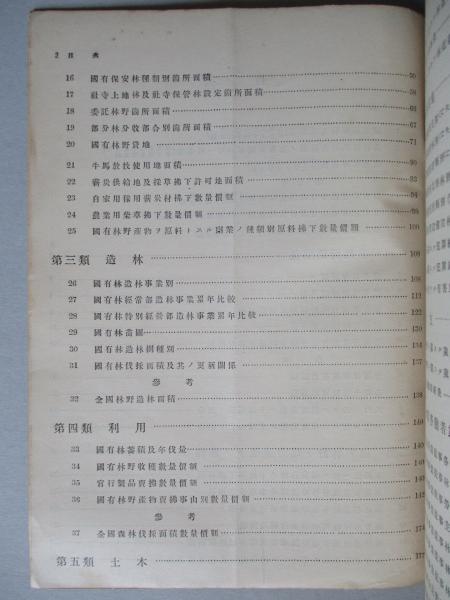 2 目 次
16 國有保安林種類別箇所面積 50
17 社寺上地林及社寺保管林設定箇所面積 58
18 委託林野箇所面積 66
19 部分林分收部合別箇所面積 67
20 國有林野貸地 71
21 牛馬放牧使用地面積 90
22 薪炭供給地及採草拂下許可地面積 92
23 自家用稼用薪炭材拂下數量價額 94
24 農業用柴草拂下數量價額 98
25 國有林野產物ヲ原料トスル副業ノ種類別原料拂下數量價額 100
第三類 造林 108
26 國有林造林事業別 108
27 國有林經常部造林事業累年比較 112
28 國有林特別經營部造林事業累年比較 122
29 國有林苗圃 130
30 國有林造林樹種別 134
31 國有林伐採面積及其ノ更新關係 137
參考
32 全國林野造林面積 138
第四類 利用 140
33 國有林蓄積及年伐量 140
34 國有林野收穫數量價額
35 官行製品賣拂數量價額
36 國有林野產物賣拂事由別數量價額 142
參考
37 全國森林伐採面積數量價額 174
第五類 土木 177